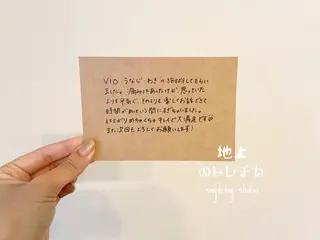 VIO・うなじ・わきの脱毛してもらい
ました。痛みもあったけど、思っていた
よりも平気で、それよりも楽しくお話できて
時間があっという間にすぎちゃいました。
仕上がりめちゃくちゃキレイで大満足です
また次回もよろしくお願いします！
地上
のトレチカ